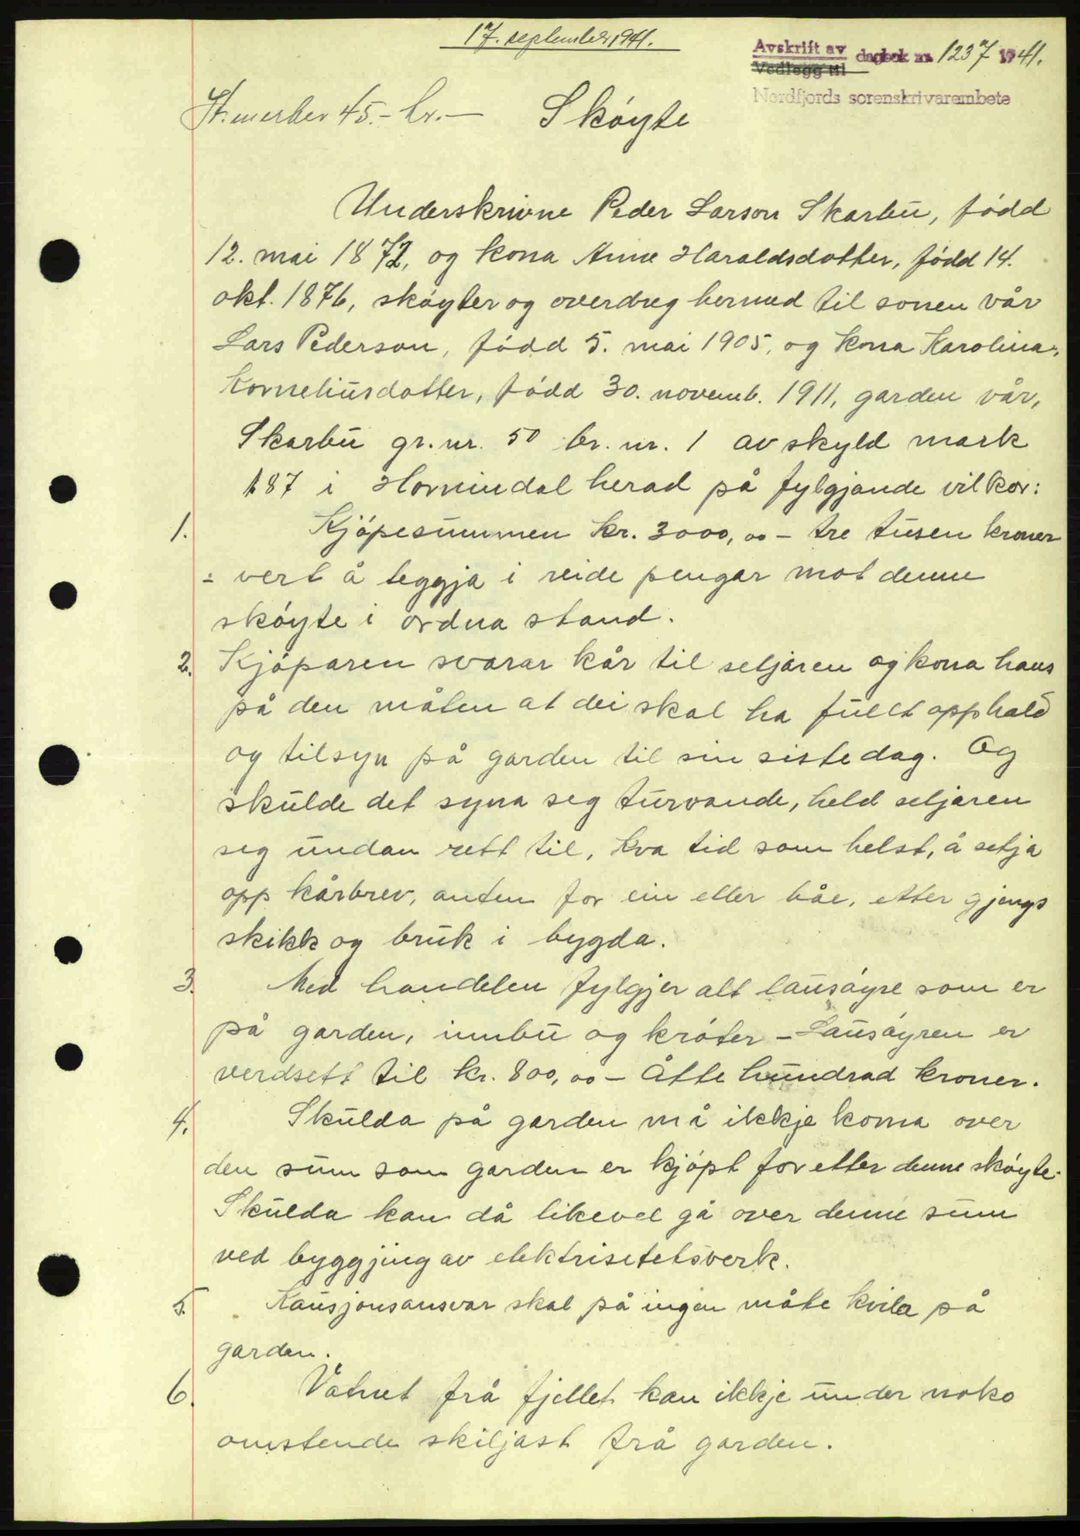 17. september 1941.
Avskrift av dagbok nr. 1237 1941.
Vedlegg til
Nordfjords sorenskrivarembete
St.merker 45.- kr.- Skøyte
Underskrivne Peder Larson Skarbü, fødd
12. mai 1872, og kona Anne Haraldsdotter, fødd 14.
okt. 1876, skøyter og overdreg hermed til sonen vår
Lars Pederson, fødd 5. mai 1905, og kona Karolina
Korneliusdotter, fødd 30. novemb. 1911, garden vår,
Skarbü gr.nr. 50 br.nr. 1 av skyld mark
1.87 i Hornindal herad på fylgjande vilkor:
1. Kjøpesummen kr. 3000,00 - tre tusen kroner
- vert å leggja i reide pengar mot denne
skøyte i ordna stand.
2. Kjøparen svarar kår til seljaren og kona hans
på den måten at dei skal ha fullt opphald
og tilsyn på garden til sin siste dag. Og
skulde det syna seg turvande, held seljaren
seg undan rett til, kva tid som helst, å setja
opp kårbrev, anten for ein eller båe, etter gjengs
skikk og bruk i bygda.
3. Med handelen fylgjer alt lausøyre som er
på garden, innbu og krøter - Lausøyren er
verdsett til kr. 800,00 - Åtte hundrad kroner.
4. Skulda på garden må ikkje koma over
den sum som garden er kjøpt for etter denne skøyte.
Skulda kan då likevel gå over denne sum
ved byggjing av elektrisitetsverk.
5. Kausjonsansvar skal på ingen måte kvila på
garden.
6. Vatnet frå fjellet kan ikkje under noko
omstende skiljast frå garden.